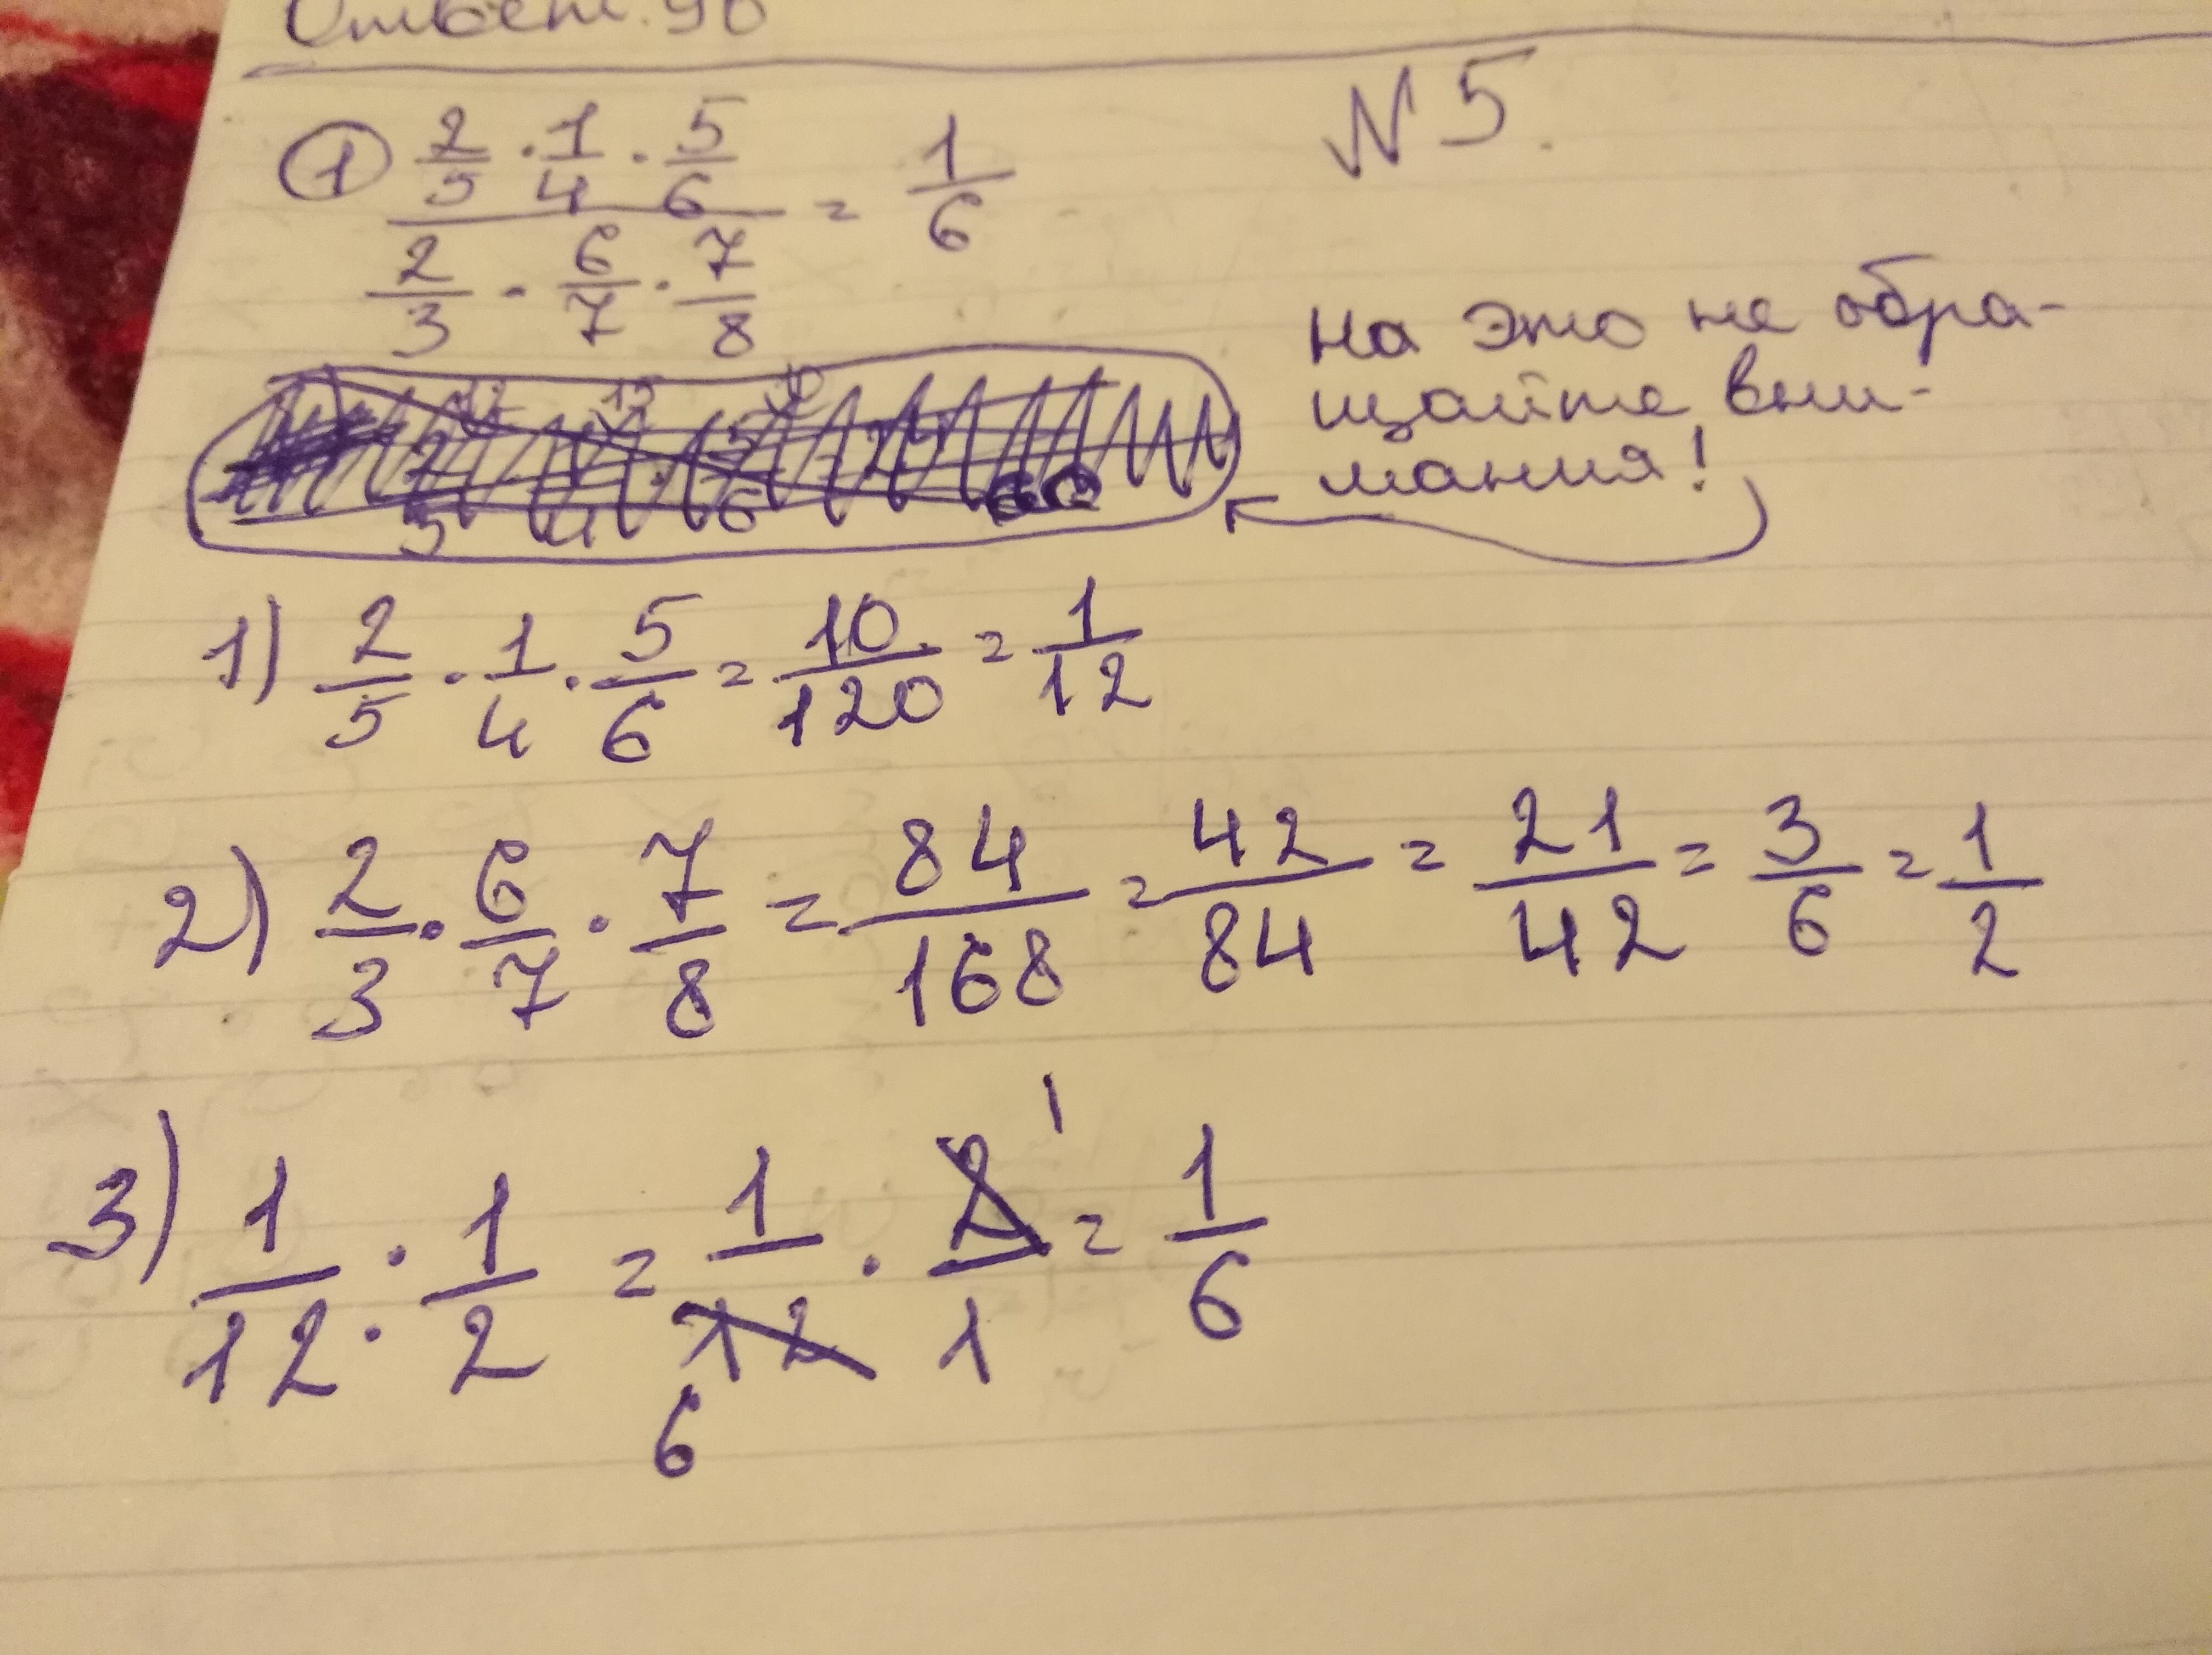 Ответ: 90
N 5.
① (2/5 · 1/4 · 5/6) / (2/3 · 6/7 · 7/8) = 1/6
На это не обра-
щайте вни-
мания!
1) 2/5 · 1/4 · 5/6 = 10/120 = 1/12
2) 2/3 · 6/7 · 7/8 = 84/168 = 42/84 = 21/42 = 3/6 = 1/2
3) 1/12 : 1/2 = 1/12 · 2/1 = 1/6
1
6